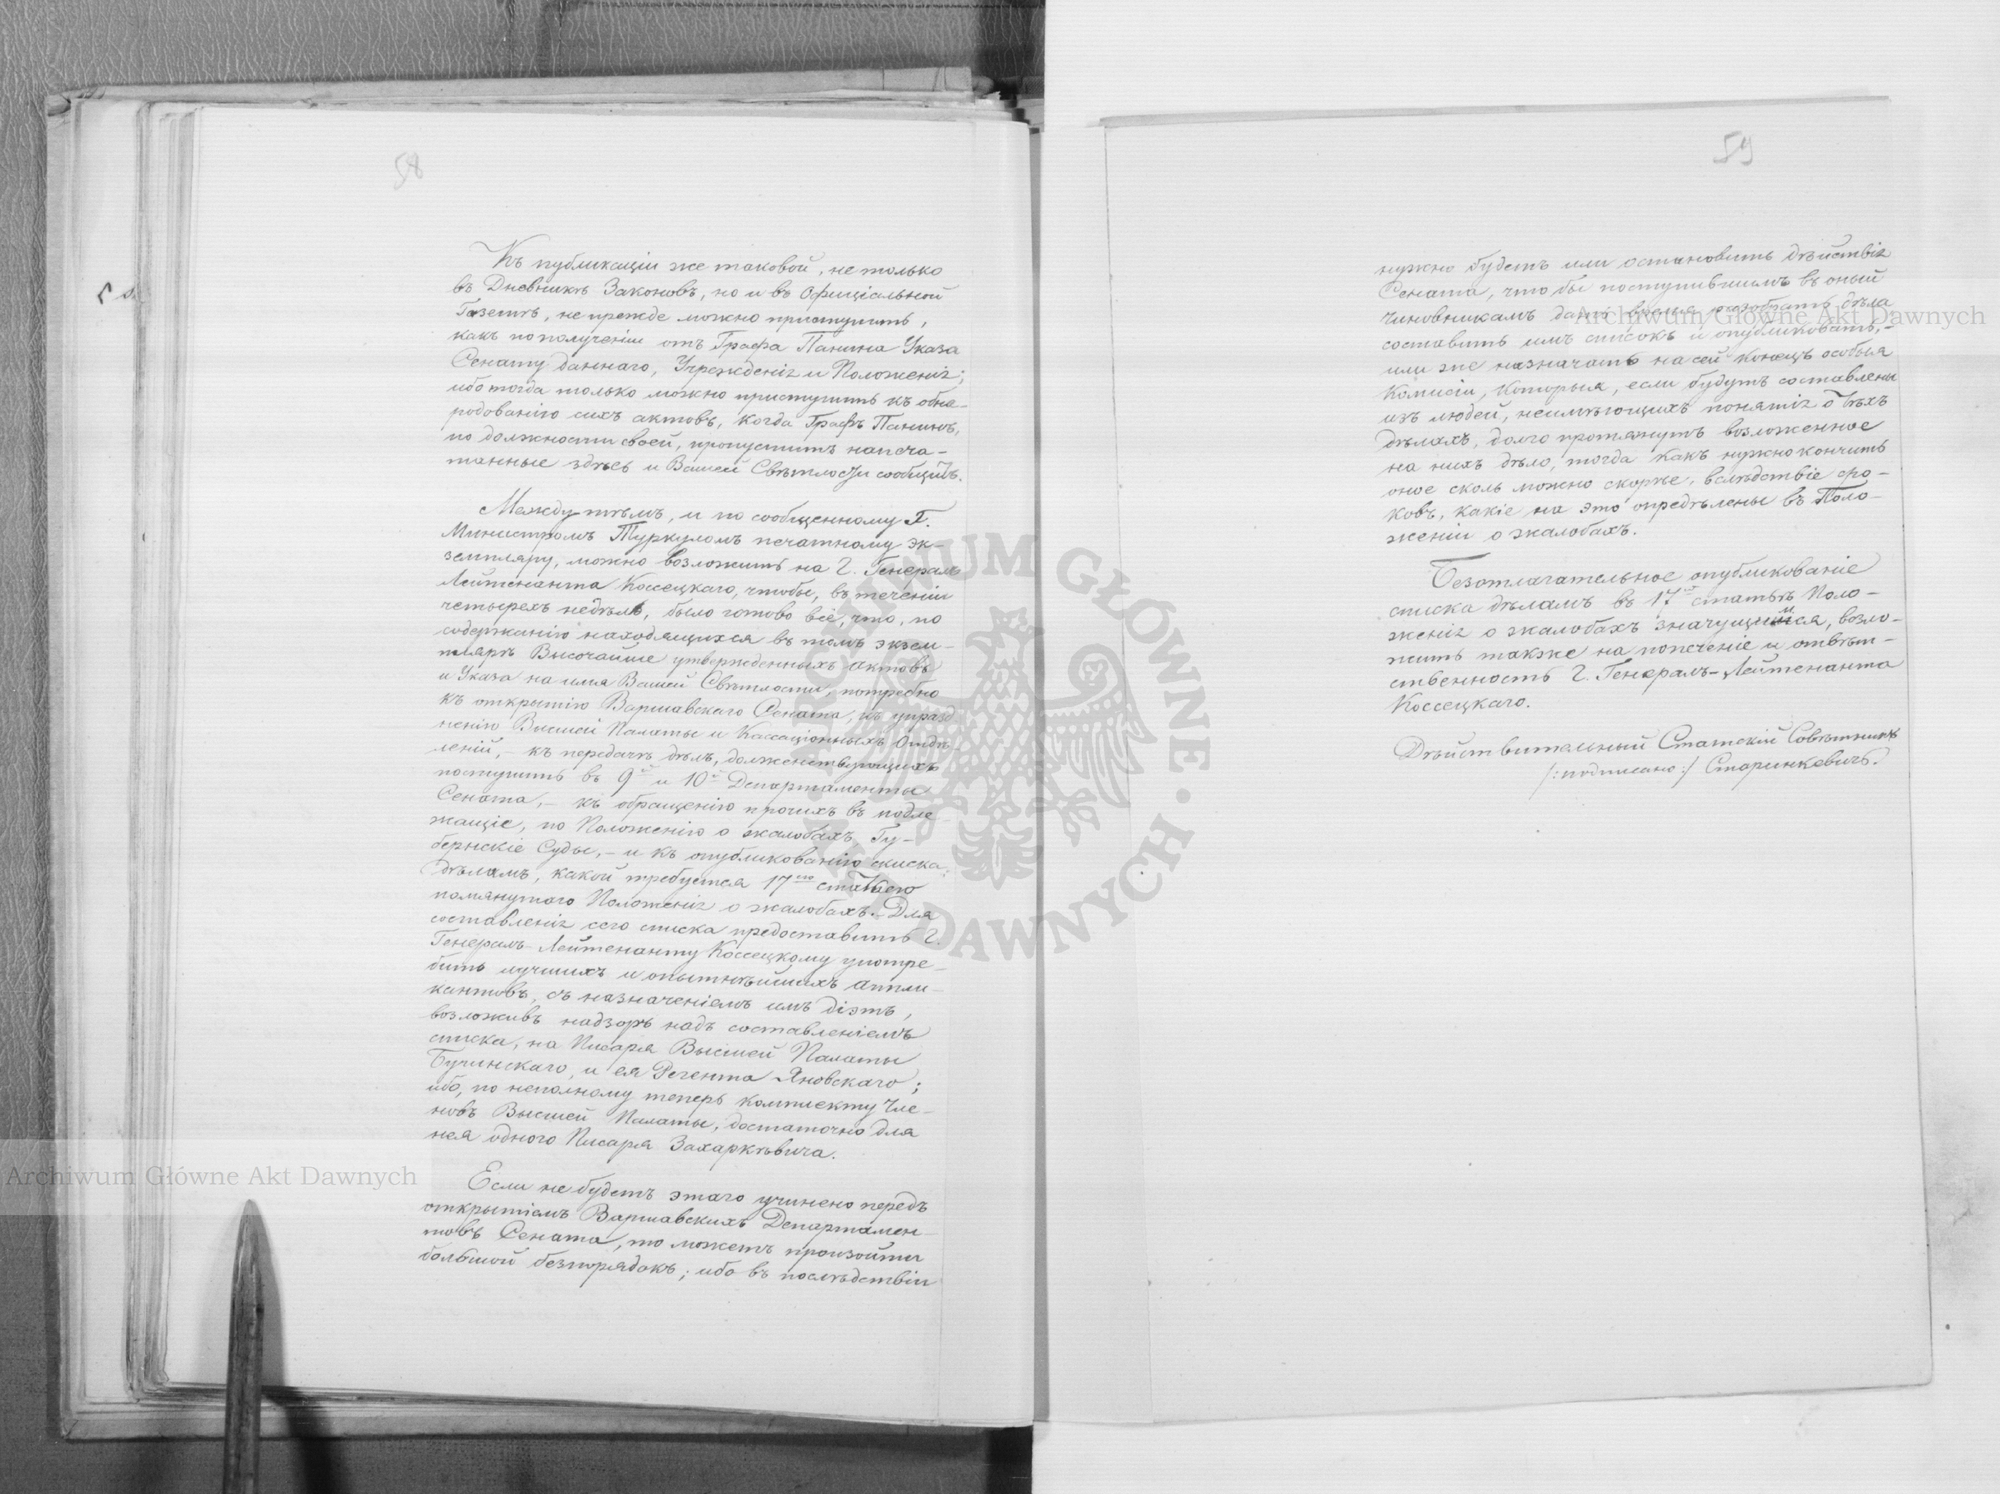 58
Къ публикаціи же таковой, не только
въ Дневникѣ Законовъ, но и въ Офиціальной
Газетѣ, не прежде можно приступить,
какъ по полученіи отъ Графа Панина Указа
Сенату даннаго, Учрежденія и Положенія;
ибо тогда только можно приступить къ обна-
родованію сихъ актовъ, когда Графъ Панинъ,
по должности своей, пропуститъ напеча-
танные здѣсь и Вашей Свѣтлости сообщитъ.
Между тѣмъ, и по сообщенному Г.
Министромъ Туркуломъ печатному эк-
земпляру, можно возложить на Г. Генералъ
Лейтенанта Коссецкаго, чтобы, въ теченіи
четырехъ недѣль, было готово всё, что, по
содержанію находящихся въ томъ экзем-
плярѣ Высочайше утвержденныхъ актовъ
и Указа на имя Вашей Свѣтлости, потребно
къ открытію Варшавскаго Сената, къ упразд
ненію Высшей Палаты и Кассаціонныхъ Отдѣ-
леній, - къ передачѣ дѣлъ, долженствующихъ
поступить въ 9й и 10й Департаменты
Сената, - къ обращенію прочихъ въ подле-
жащіе, по Положенію о жалобахъ, Гу-
бернскіе Суды, - и къ опубликованію списка
дѣламъ, какой требуется 17ою статьею
помянутаго Положенія о жалобахъ. Для
составленія сего списка предоставить Г.
Генералъ-Лейтенанту Коссецкому употре-
бить лучшихъ и опытнѣйшихъ аппли-
кантовъ, съ назначеніемъ имъ діэтъ,
возложивъ надзоръ надъ составленіемъ
списка, на Писаря Высшей Палаты
Бучинскаго, и ея Регента Яновскаго;
ибо, по неполному теперь комплекту Чле-
новъ Высшей Палаты, достаточно для
нея одного Писаря Захаркѣвича.
Если не будетъ этаго учинено передъ
открытіемъ Варшавскихъ Департамен-
товъ Сената, то можетъ произойти
большой безпорядокъ; ибо въ послѣдствіи
59
нужно будетъ или остановить дѣйствія
Сената, что бы поступившимъ въ оный
чиновникамъ дать время разобрать дѣла
составить имъ списокъ и опубликовать, -
или же назначать на сей конецъ особыя
Комисіи, которыя, если будутъ составлены
изъ людей, неимѣющихъ понятія о тѣхъ
дѣлахъ, долго протянутъ возложенное
на нихъ дѣло, тогда какъ нужно кончить
оное сколь можно скорѣе, вслѣдствіе сро-
ковъ, какіе на это опредѣлены въ Поло-
женіи о жалобахъ.
Безотлагательное опубликованіе
списка дѣламъ въ 17й статьѣ Поло-
женія о жалобахъ значущимся, возло-
жить также на попеченіе и отвѣт-
ственность Г. Генералъ-Лейтенанта
Коссецкаго.
Дѣйствительный Статскій Совѣтникъ
/:подписано:/ Старинкевичъ.
Archiwum Główne Akt Dawnych
Archiwum Główne Akt Dawnych
ARCHIWUM GŁÓWNE AKT DAWNYCH